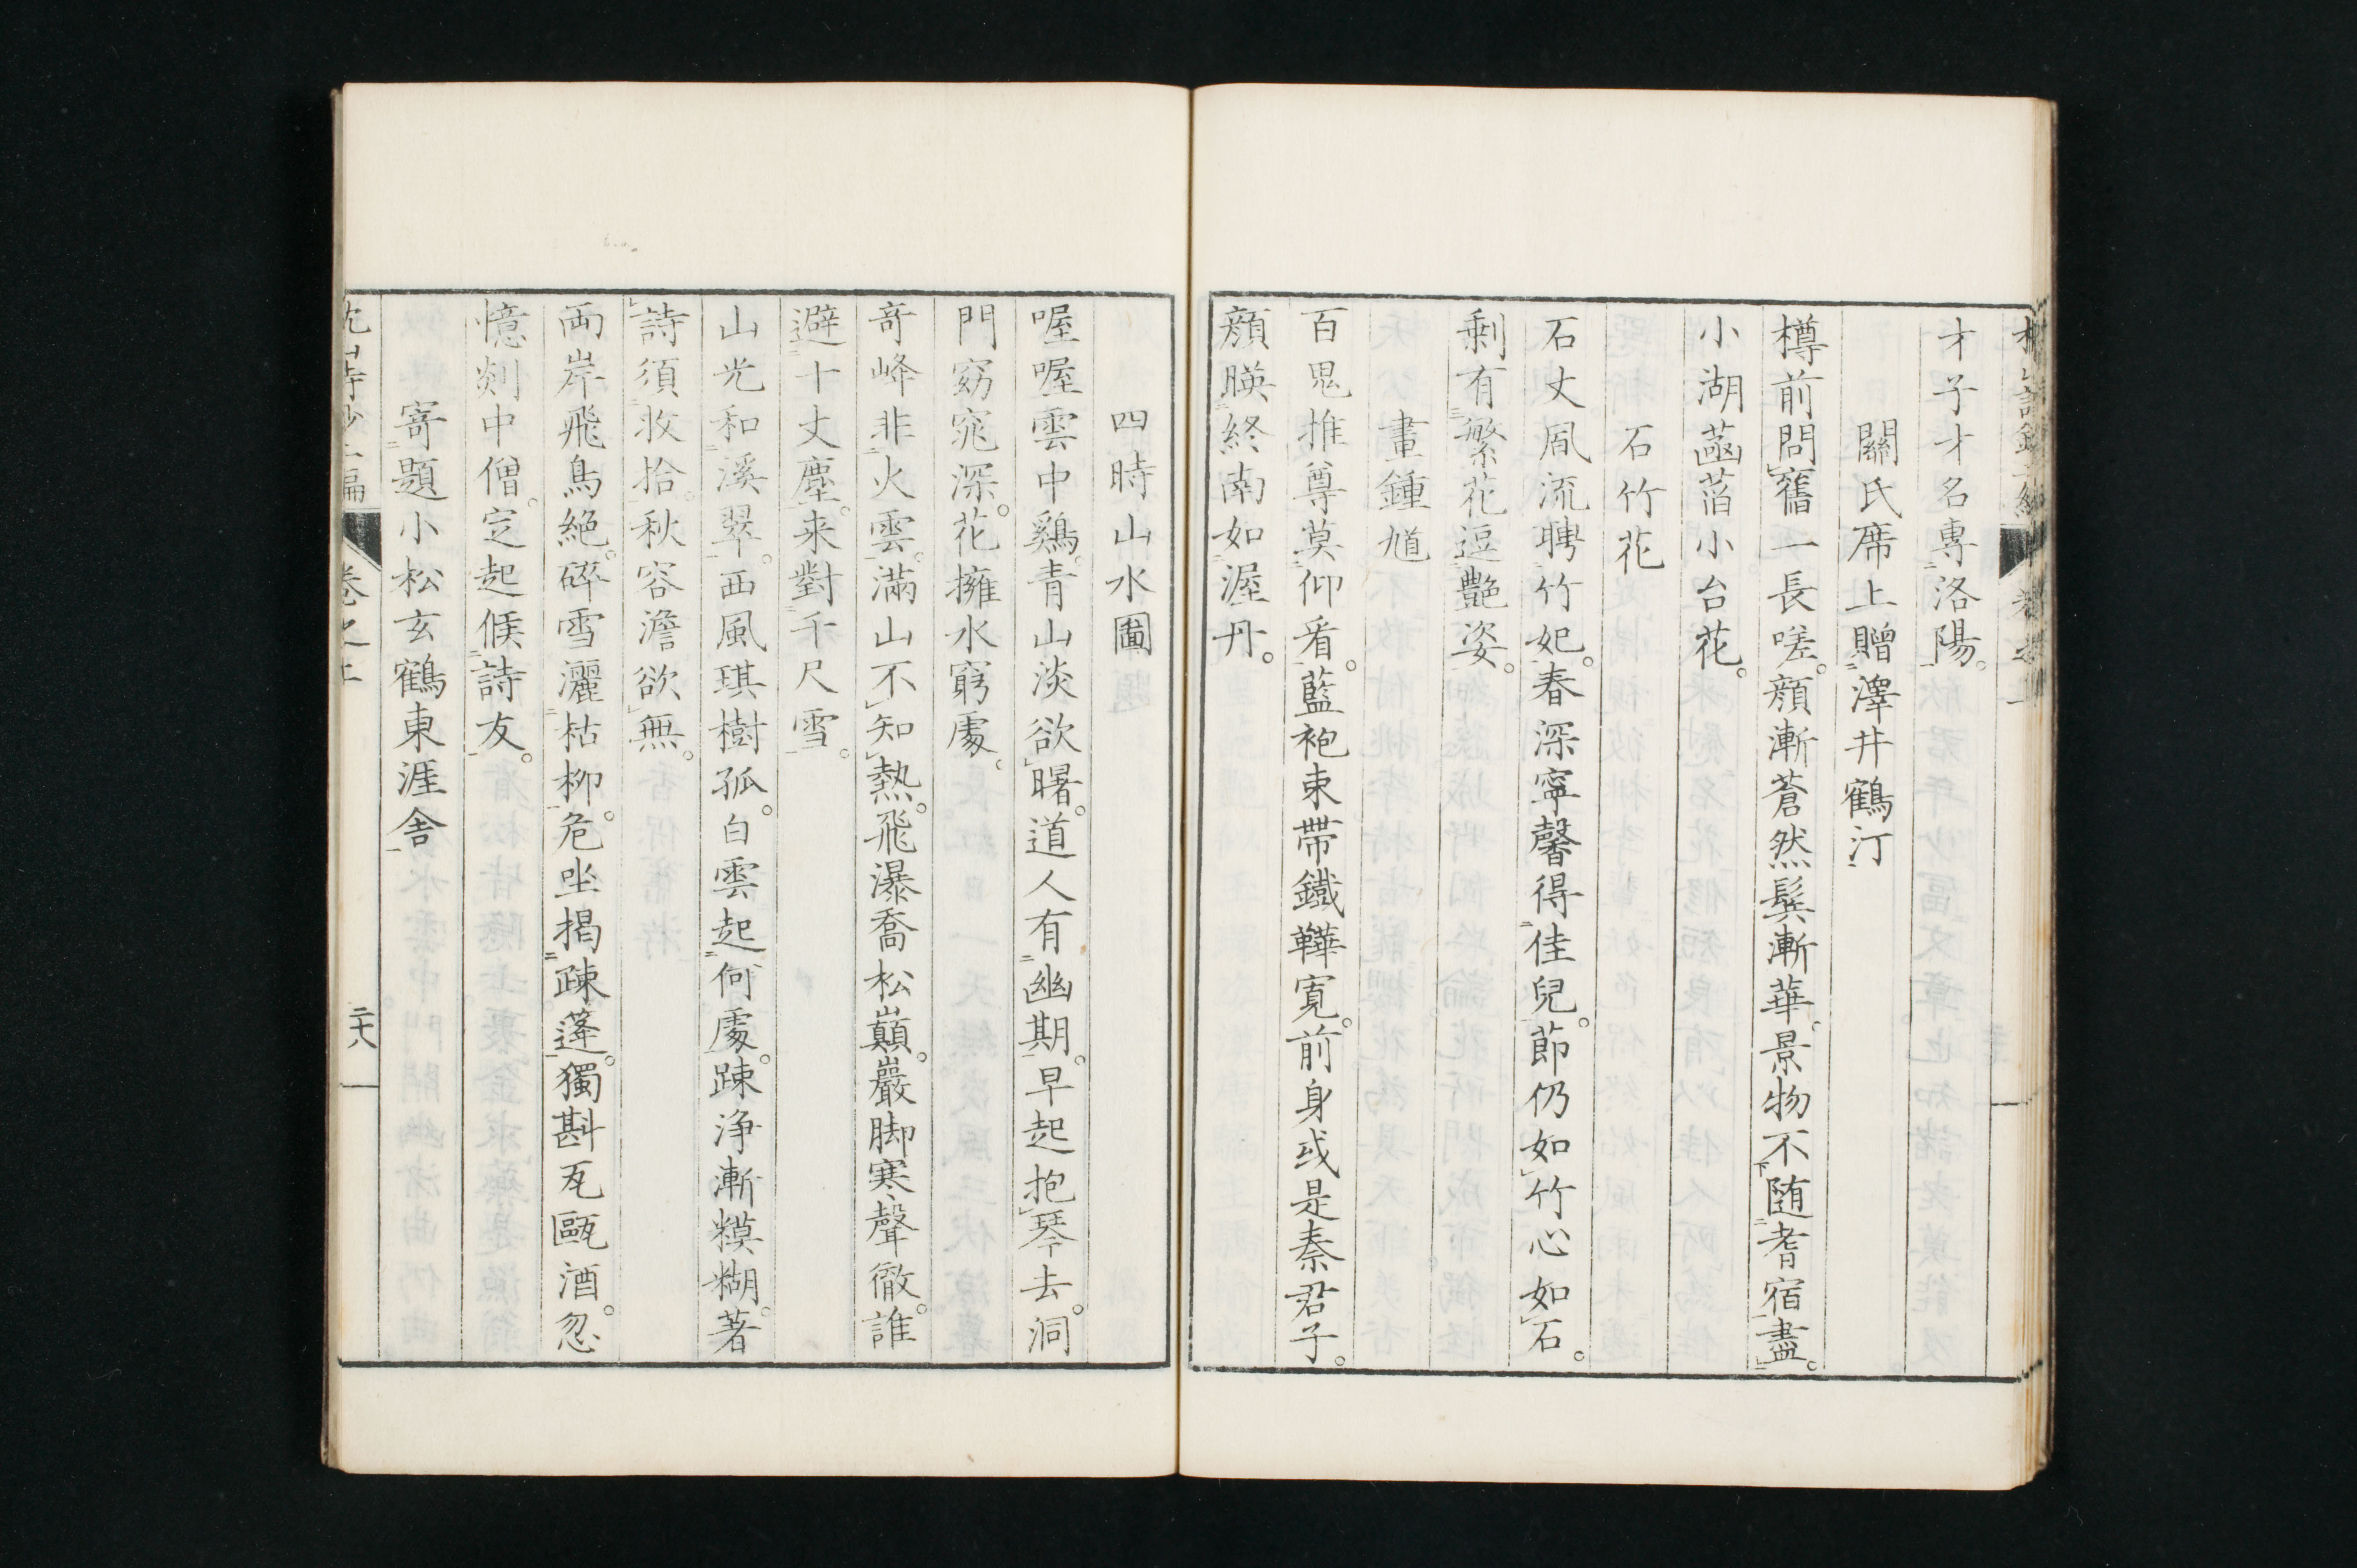 才子才名專洛陽。
關氏席上贈澤井鶴汀
樽前問舊一長嗟。顏漸蒼然鬢漸華。景物不随耆宿盡。
小湖菡萏小台花。
石竹花
石丈風流聘竹妃。春深寧馨得佳兒。節仍如竹心如石。
剩有繁花逗艶姿。
畫鍾馗
百鬼推尊莫仰看。藍袍束帶鐵鞾寬。前身或是秦君子。
顏暎終南如渥丹。
四時山水圖
喔喔雲中鷄。青山淡欲曙。道人有幽期。早起抱琴去。洞
門窈窕深。花擁水窮處。
奇峰非火雲。滿山不知熱。飛瀑喬松巓。巖脚寒聲徹。誰
避十丈塵。来對千尺雪。
山光和溪翠。西風琪樹孤。白雲起何處。踈浄漸糢糊。著
詩須收拾。秋容澹欲無。
両岸飛鳥絶。碎雪灑枯柳。危坐揭踈蓬。獨斟瓦甌酒。忽
憶剡中僧。定起候詩友。
寄題小松玄鶴東涯舎
卷之上
二十八